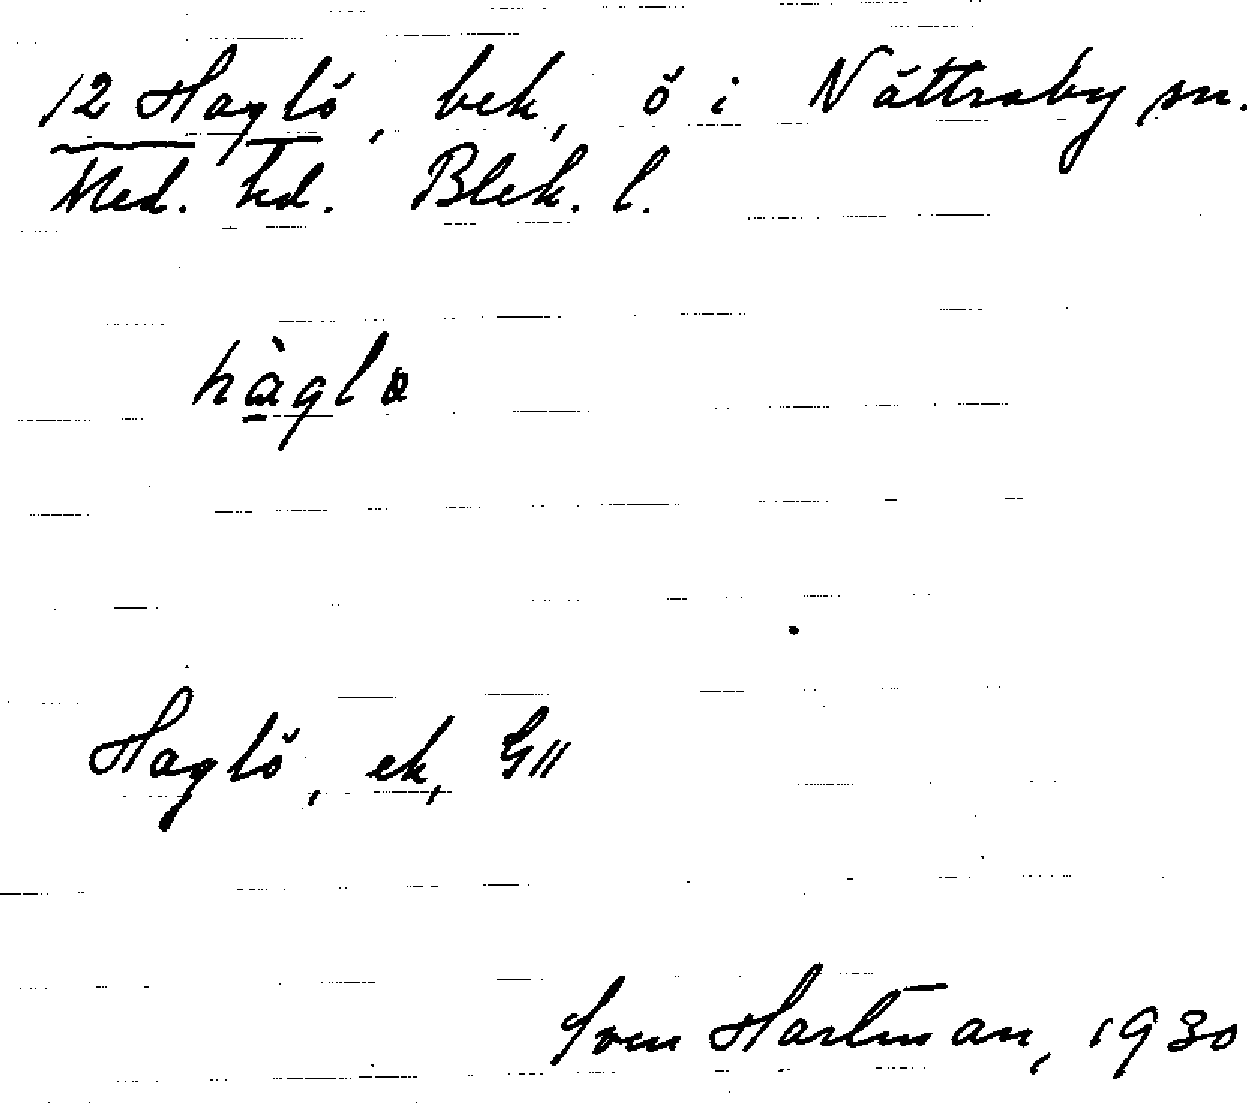 12 Haglö, bek, ö i Nättraby sn.
Med. hd. Blek. l.
hàglo
Haglö, ek, G11
Sven Hartman, 1930